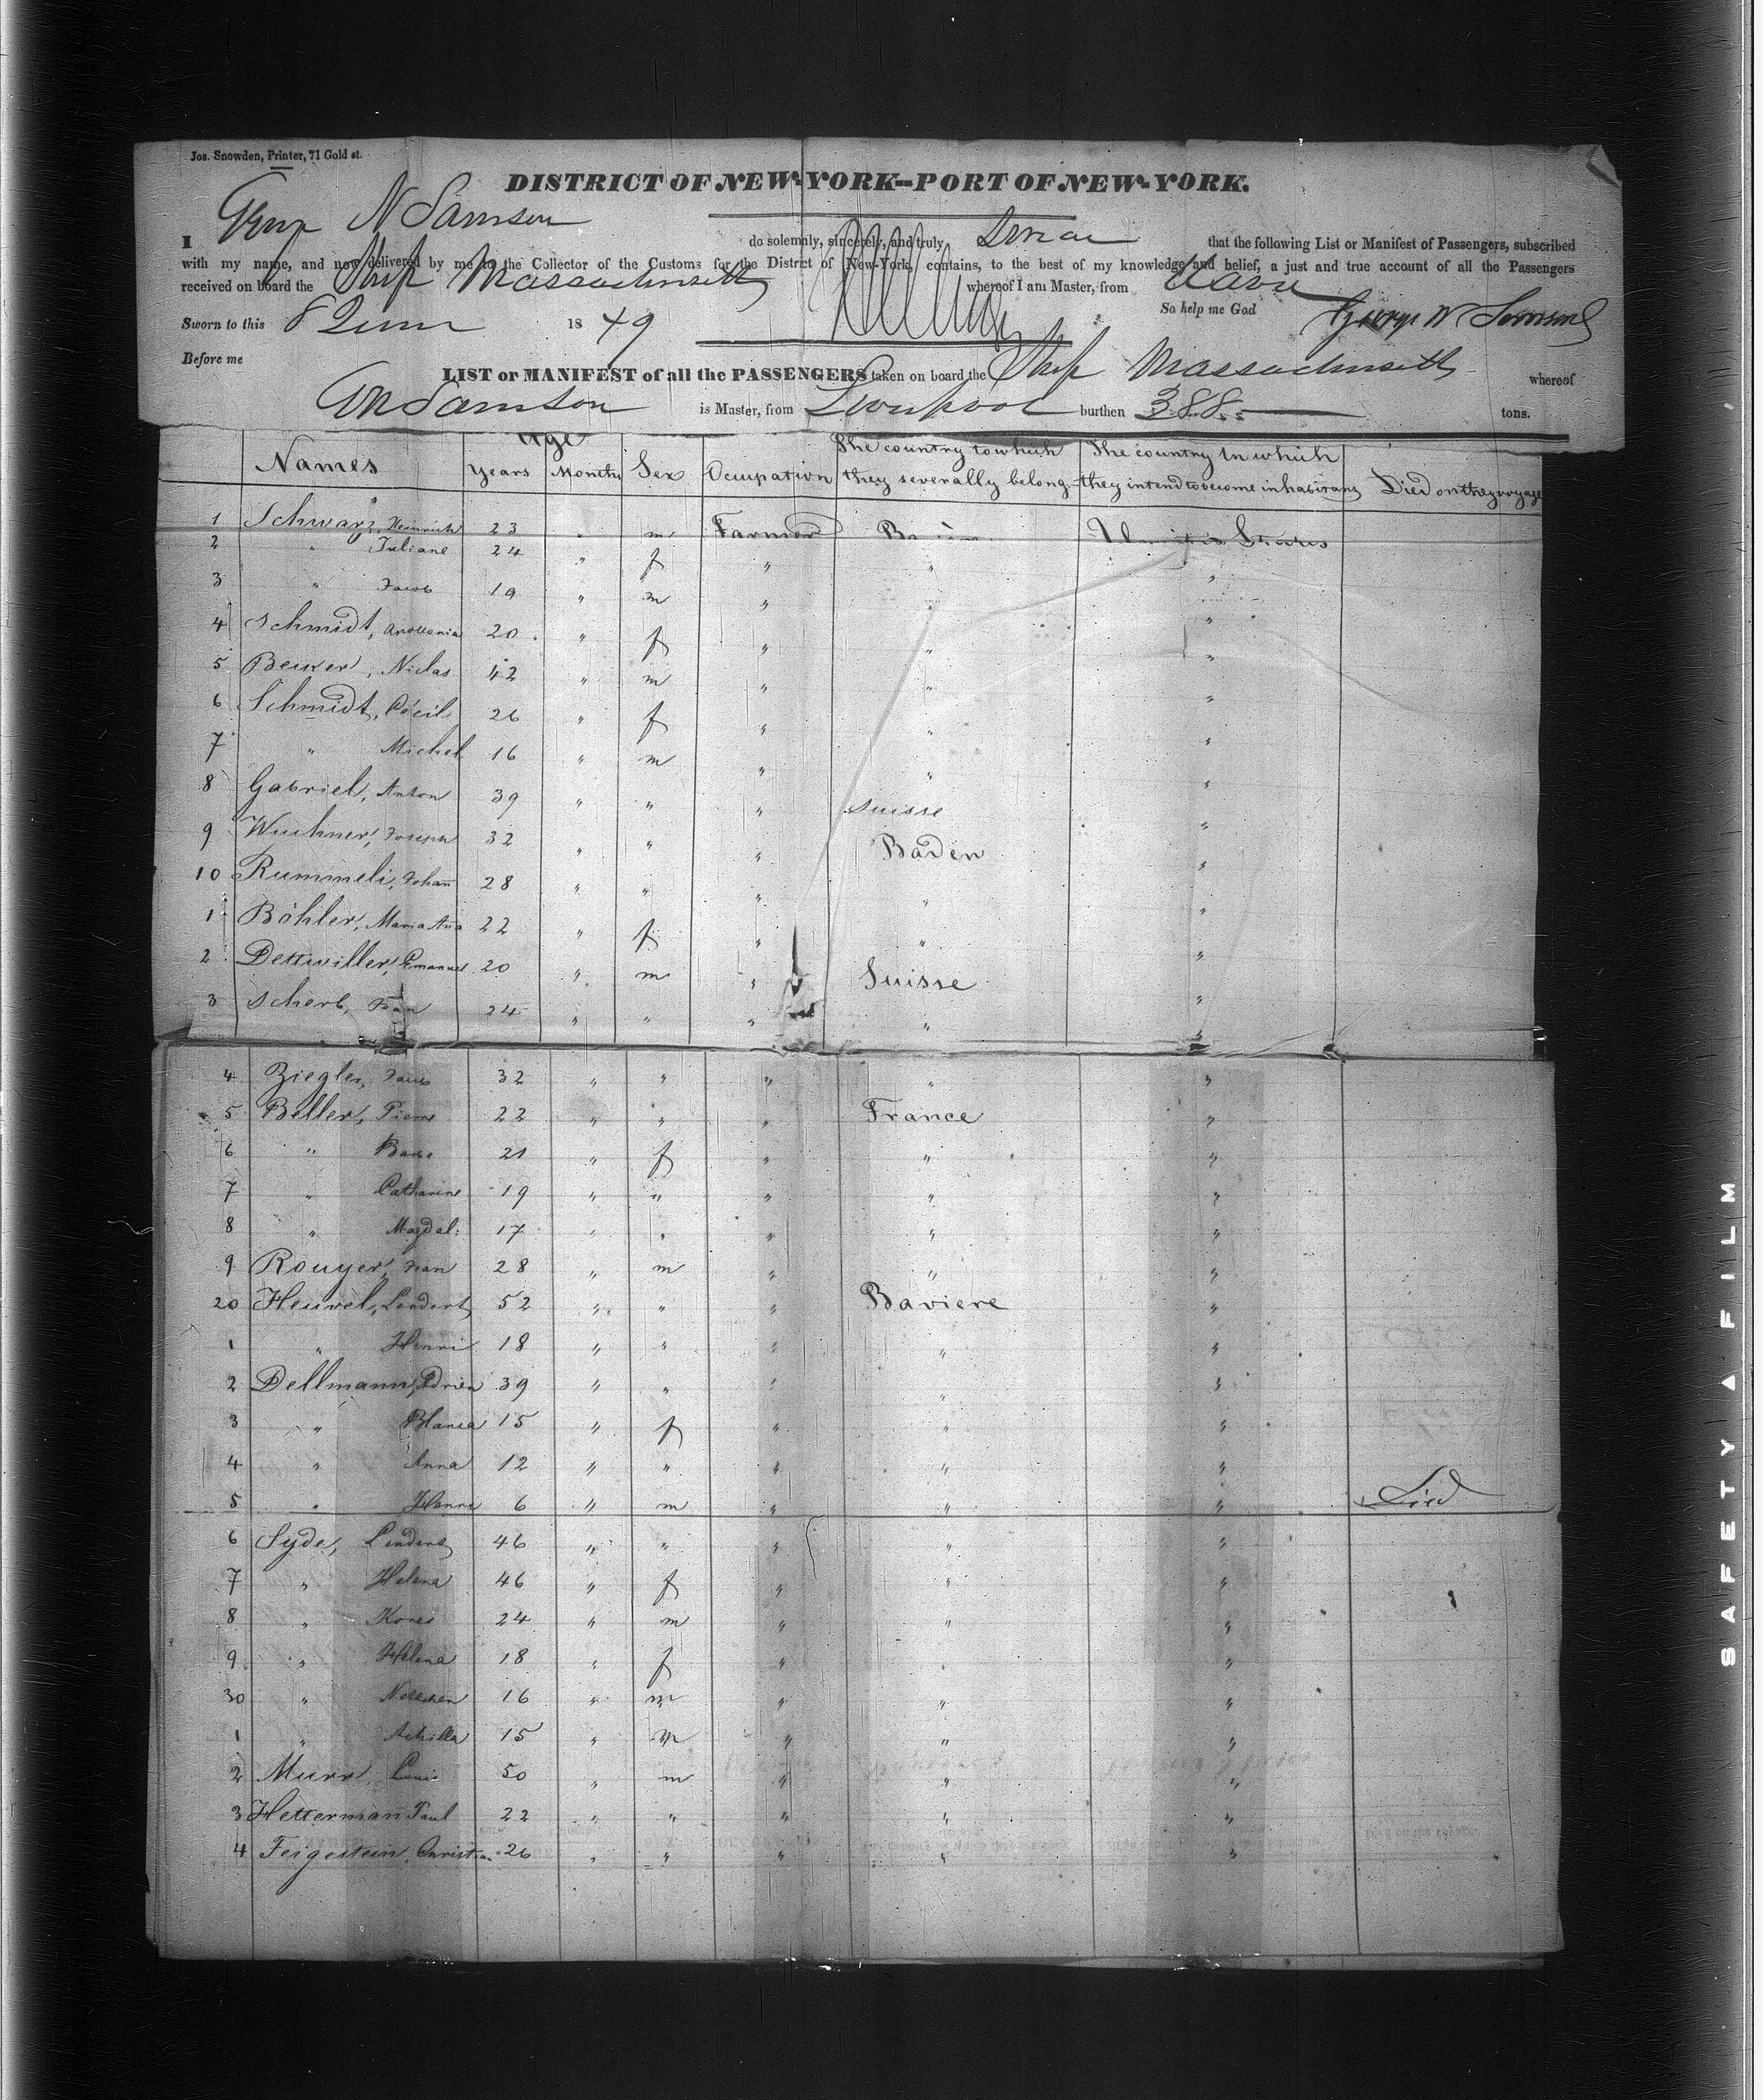 Jos. Snowden, Printer, 71 Gold st.
DISTRICT OF NEW-YORK--PORT OF NEW-YORK.
I Geo N Samson do solemnly, sincerely, and truly Swear that the following List or Manifest of Passengers, subscribed
with my name, and now delivered by me to the Collector of the Customs for the District of New-York, contains, to the best of my knowledge and belief, a just and true account of all the Passengers
received on board the Ship Massachusetts whereof I am Master, from Havre
Sworn to this 8 June 1849 So help me God George W Samson
Before me
LIST or MANIFEST of all the PASSENGERS taken on board the Ship Massachusetts whereof
GW Samson is Master, from Liverpool burthen 388 tons.
Names Age Years Months Sex Ocupation The country to which they severally belong The country in which they intend to become inhabitans Died on they voyage
1 Schwarz, Heinrich 23 " m Farmer United States
2 " Juliane 24 " f " " "
3 " Jacob 19 " m " " "
4 Schmidt, Apollonia 20 " f " " "
5 Becker, Niclas 42 " m " " "
6 Schmidt, Cécil 26 " f " " "
7 " Michel 16 " m " " "
8 Gabriel, Anton 39 " " " Suisse "
9 Wuchner, Joseph 32 " " " Baden "
10 Rummeli, Johan̄ 28 " " " " "
1 Böhler, Maria An̄a 22 " f " " "
2 Dettwiller, Emanuel 20 " m " Suisse "
3 Scherb, Jean 24 " " " " "
4 Ziegler, Jacob 32 " " " " "
5 Beller, Pierre 22 " " " France "
6 " Barbe 21 " f " " "
7 " Catharine 19 " " " " "
8 " Magdal: 17 " " " " "
9 Rouyer, Jean 28 " m " " "
20 Heuvel, Lendert 52 " " " Baviere "
1 " Henri 18 " " " " "
2 Dellmann, Adrien 39 " " " " "
3 " Blanca 15 " f " " "
4 " Anna 12 " " " " "
5 " Henri 6 " m " " " Died
6 Syde, Lendert 46 " " " " "
7 " Helena 46 " f " " "
8 " Kores 24 " m " " "
9 " Helena 18 " f " " "
30 " 16 " m " " "
1 " Achilla 15 " m " " "
2 Murr, Louis 50 " m " " "
3 Hetterman̄ Paul 22 " " " " "
4 Feigestein, Christian 26 " " " " "
SAFETY ▲ FILM